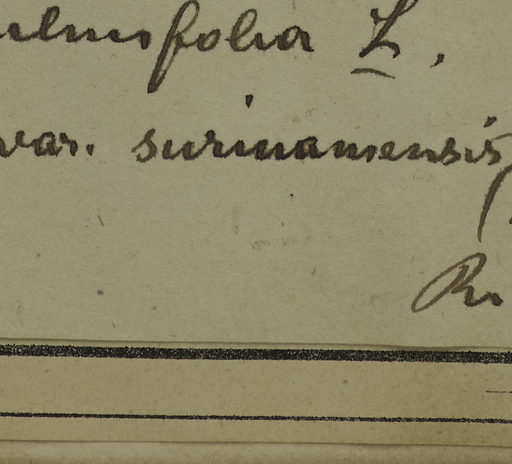 ulmifolia L.
var. surinamensis